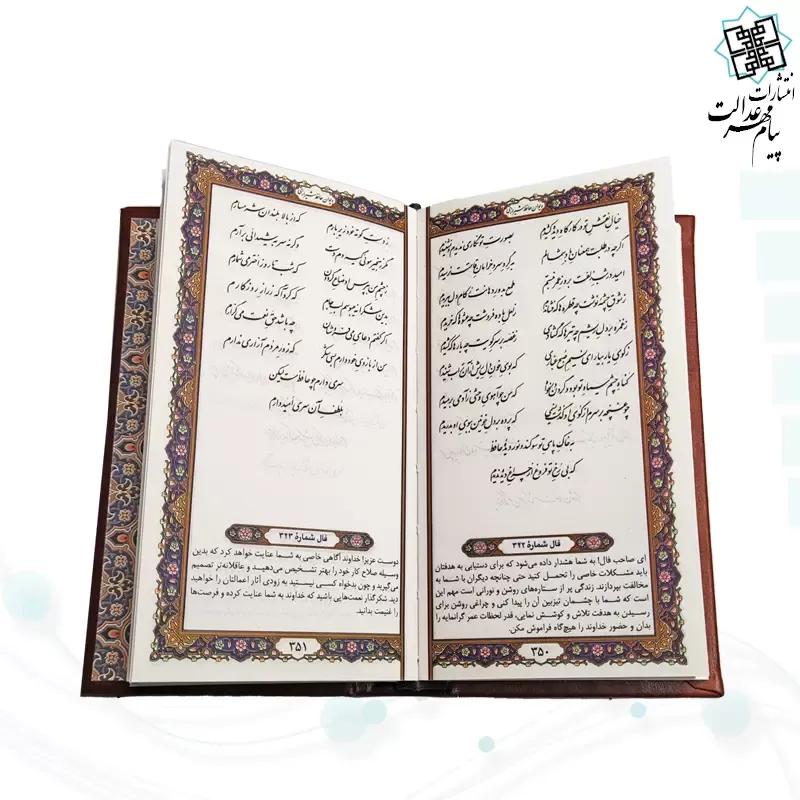 انتشارات
پیام مهر عدالت
دیوان حافظ شیرازی
خیال نقش تو در کارگاه دیده کشیدم بصورت تو نگاری ندیدم و نشنیدم
اگرچه در طلبت همعنان باد شمالم بگرد سرو خرامان قامتت نرسیدم
امید در شب زلفت بروز عمر نبستم طمع بدور دهانت ز کام دل ببریدم
ز شوق چشمه نوشت چه قطره‌ها که فشاندم ز لعل باده فروشت چه عشوه‌ها که خریدم
ز غمزه بر دل ریشم چه تیرها که گشادی ز غصه بر سر کویت چه بارها که کشیدم
ز کوی یار بیار ای نسیم صبح غباری که بوی خون دل ریش از آن تراب شنیدم
گناه چشم سیاه تو بود و گردن دلخواه که من چو آهوی وحشی ز آدمی برمیدم
چو غنچه بر سرم از کوی او گذشت نسیمی که پرده بر دل خونین ببوی او بدریدم
به خاک پای تو سوگند و نور دیدهٔ حافظ
که بی رخ تو فروغ از چراغ دیده ندیدم
فال شمارهٔ ۳۲۲
ای صاحب فال! به شما هشدار داده می‌شود که برای دستیابی به هدفتان
باید مشکلات خاصی را تحمل کنید حتی چنانچه دیگران با شما به
مخالفت بپردازند. زندگی پر از ستاره‌های روشن و نورانی است مهم این
است که شما با چشمان تیزبین آن را پیدا کنی و چراغی روشن برای
رسیدن به هدفت تلاش و کوشش نمایی، قدر لحظات عمر گرانمایه را
بدان و حضور خداوند را هیچ‌گاه فراموش مکن.
۳۵۰
دیوان حافظ شیرازی
ز دست کوته خود زیر بارم که از بالا بلندان شرمسارم
مگر زنجیر مویی گیردم دست وگرنه سر به شیدایی برآرم
ز چشم من بپرس اوضاع گردون که شب تا روز اختر می شمارم
بدین شکرانه می‌بوسم لب جام که کرد آگه ز راز روزگارم
اگر گفتم دعای می فروشان چه باشد حق نعمت می گزارم
من از بازوی خود دارم بسی شکر که زور مردم آزاری ندارم
سری دارم چو حافظ مست لیکن
بلطف آن سری امیدوارم
فال شمارهٔ ۳۲۳
دوست عزیز! خداوند آگاهی خاصی به شما عنایت خواهد کرد که بدین
وسیله صلاح کار خود را بهتر تشخیص می‌دهید و عاقلانه‌تر تصمیم
می‌گیرید و چون بدخواه کسی نیستید به زودی آثار اعمالتان را خواهید
دید. شکرگذار نعمت‌هایی باشید که خداوند به شما عنایت کرده و فرصت‌ها
را غنیمت بدانید.
۳۵۱